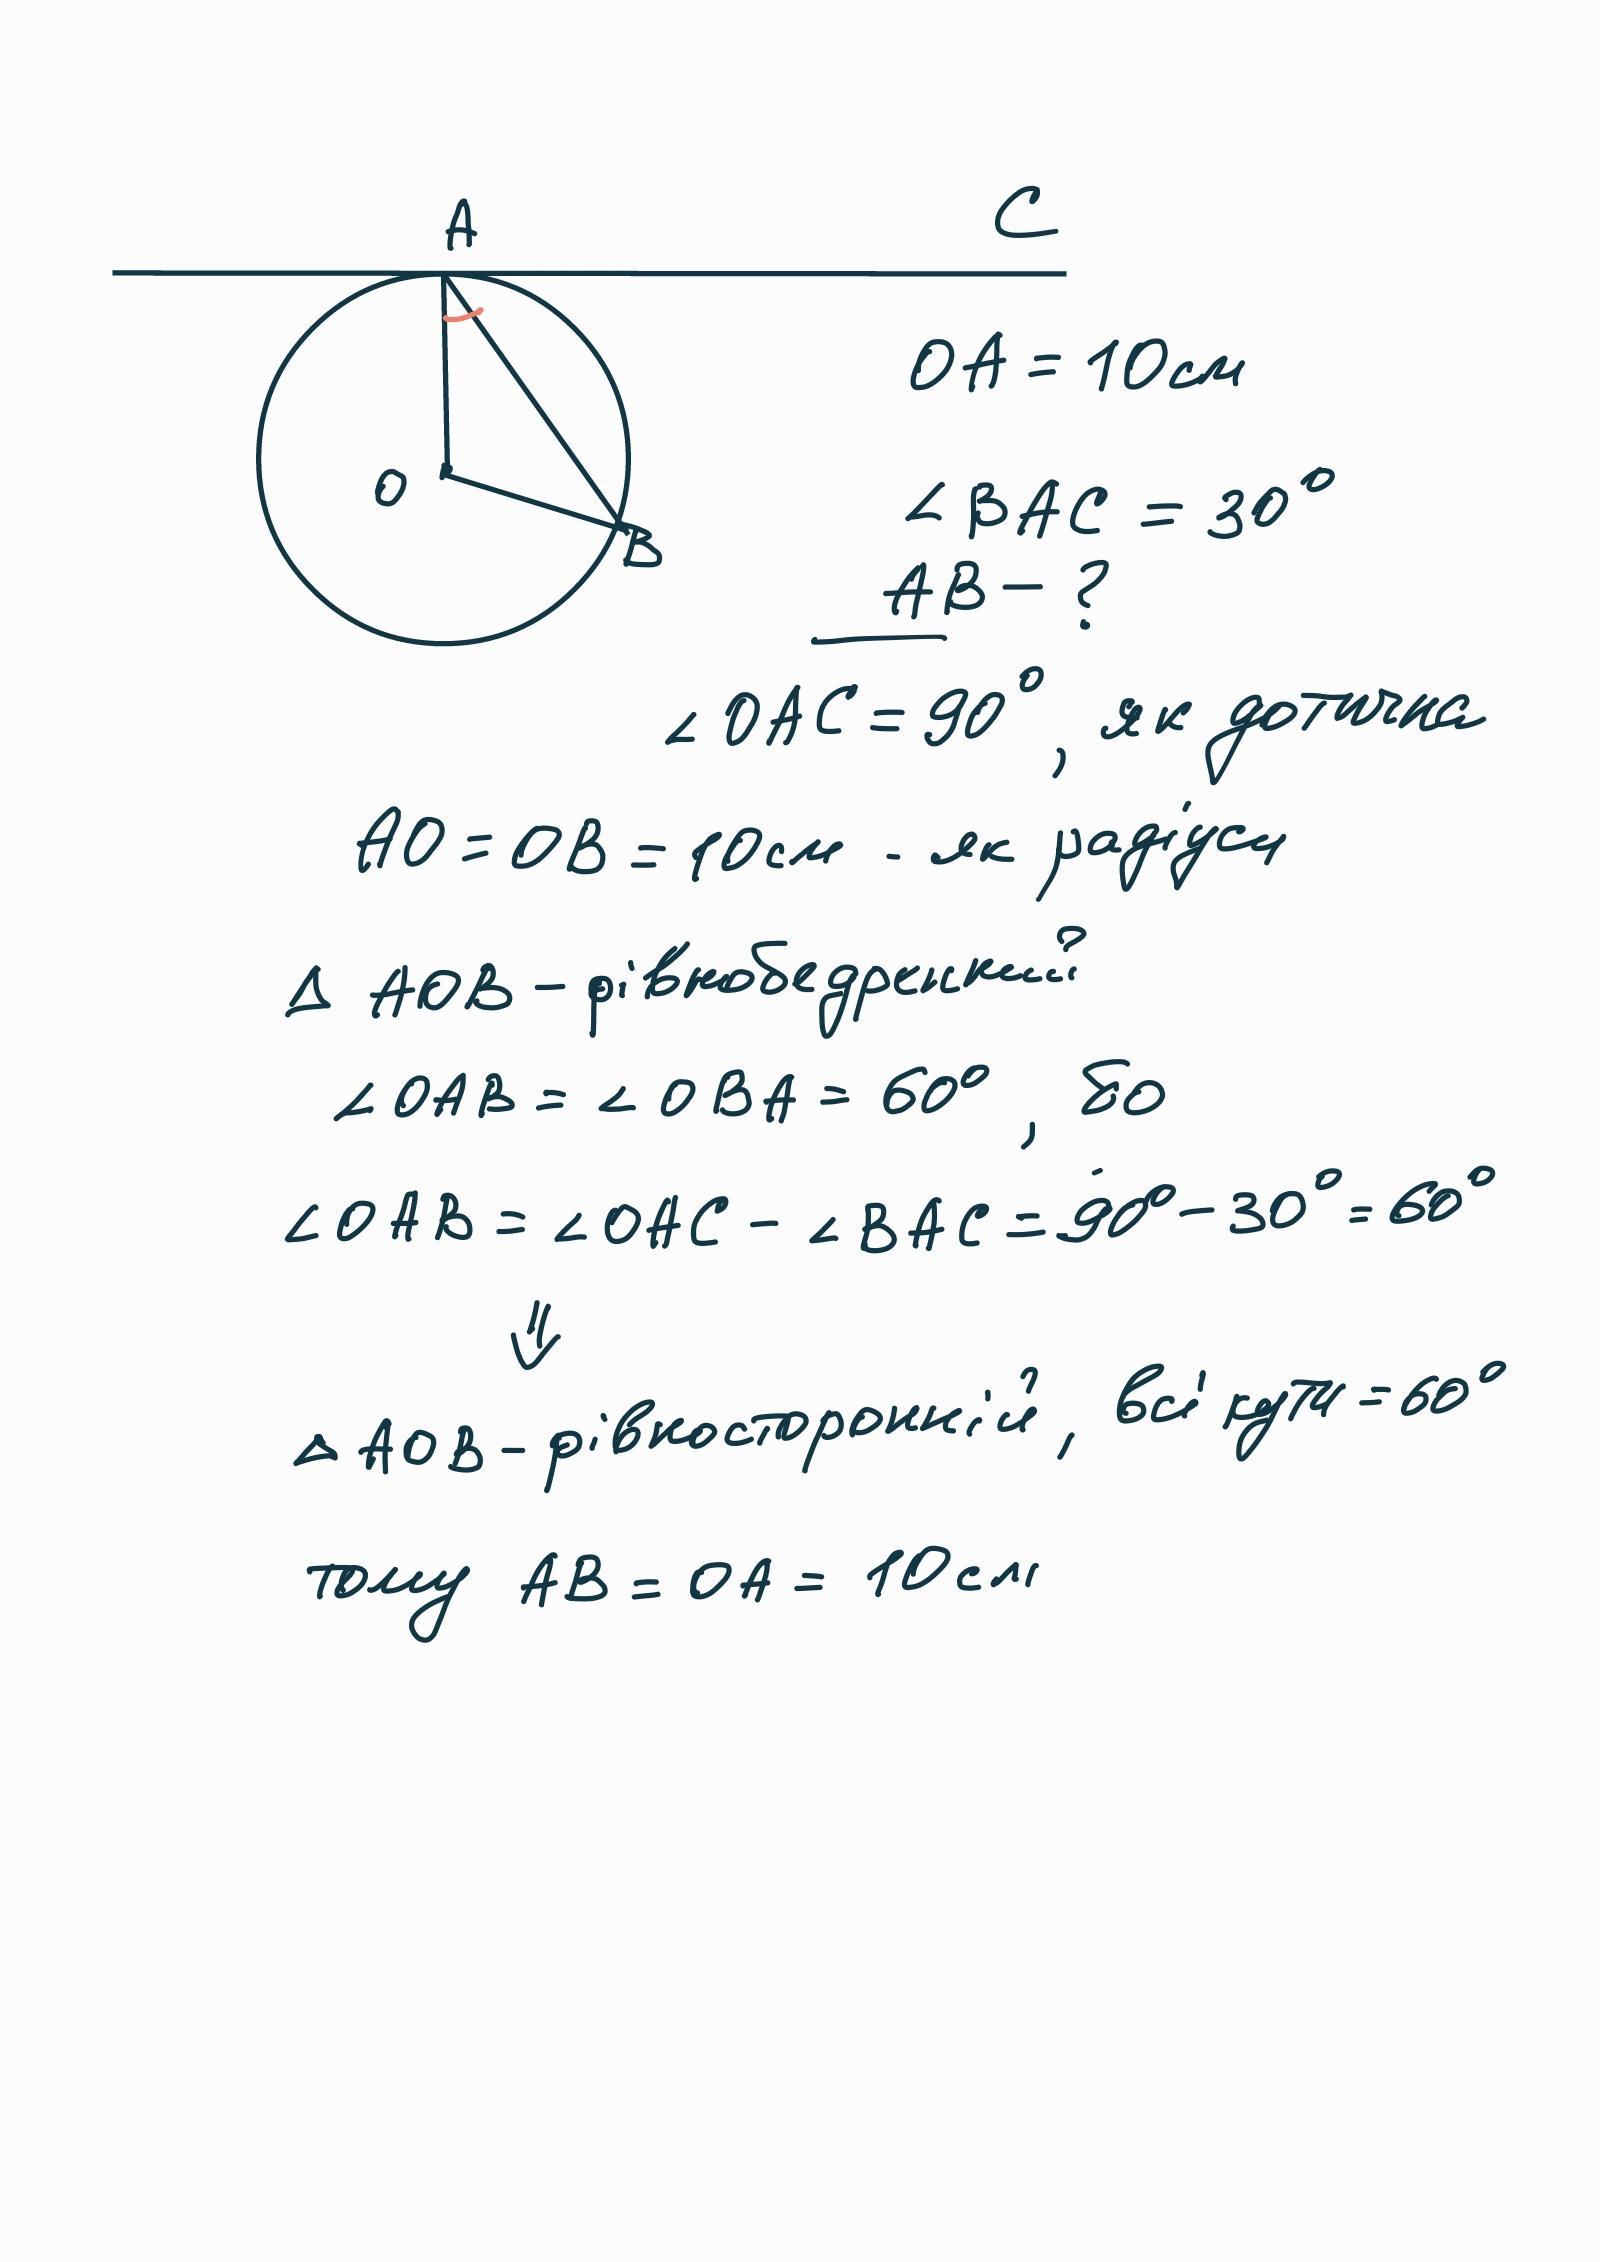 A
C
OA = 10см
O
B
∠BAC = 30°
AB - ?
∠OAC = 90°, як дотична
AO = OB = 10см - як радіуси
△ AOB - рівнобедренний
∠OAB = ∠OBA = 60°, бо
∠OAB = ∠OAC - ∠BAC = 90° - 30° = 60°
⇓
△ AOB - рівносторонній, всі кути = 60°
тому AB = OA = 10см